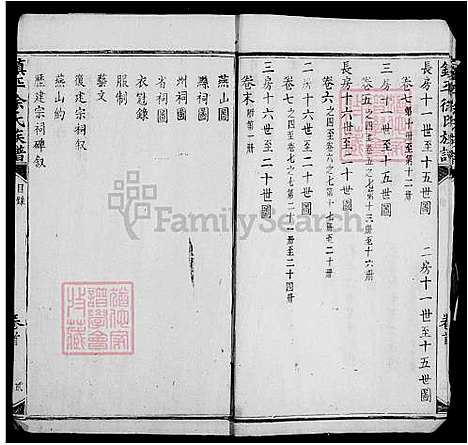 鎮平徐氏族譜
卷七第十冊至第十二冊
長房十一世至十五世圖 二房十一世至十五世圖
三房十一世至十五世圖
卷五之四至卷五之七第十三冊至十六冊
長房十六世至二十世圖
卷六之四至卷六之七第十七冊至二十冊
二房十六世至二十世圖
卷七之四至卷七之七第二十一冊至二十四冊
三房十六世至二十世圖
卷末附第一冊
卷首
燕山圖
縣祠圖
州祠圖
省祠圖
衣冠錄
服制
藝文
復建宗祠叙
燕山約
歷建宗祠碑叙
鎮平徐氏族譜
目錄
卷首
貳
FamilySearch
譜學會
收藏